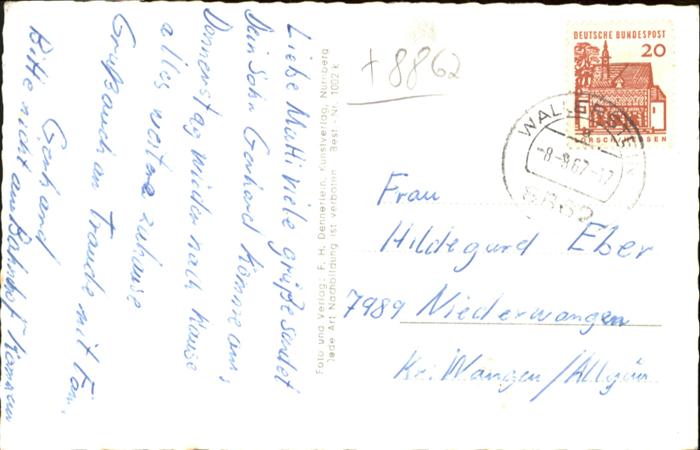 Liebe Mutti viele grüße sendet
Dein Sohn Gerhard komme am
Donnerstag wieder nach Hause
alles weitere zuhause
Gruß auch an Traude mit Fam.
Gerhard
Bitte nicht am Bahnhof kommen
Foto und Verlag: F. H. Dennerlein, Kunstverlag, Nürnberg
Jede Art Nachbildung ist verboten. Best.-Nr. 1002 k
+8862
DEUTSCHE BUNDESPOST
20
LORSCH/HESSEN
-8-9.67-17
8862
Frau
Hildegard Eber
7989 Niederwangen
Kr. Wangen/Allgäu